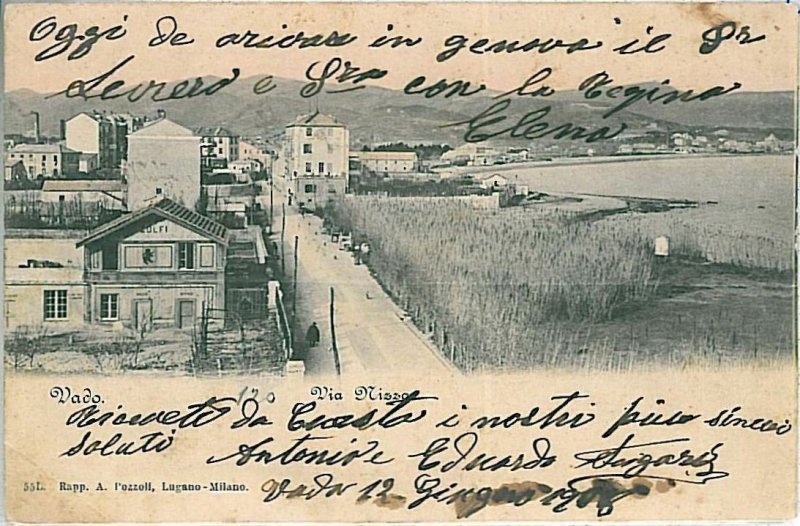 Oggi de arivare in genova il Sr
Levrero e Sra con la Regina
Elena
OLFI
Vado. 120 Via Nizza
Ricevete da Questa i nostri piu sinceri
saluti Antonio e Eduardo
55L. Rapp. A. Pozzoli, Lugano-Milano. Vado 12 Giugno